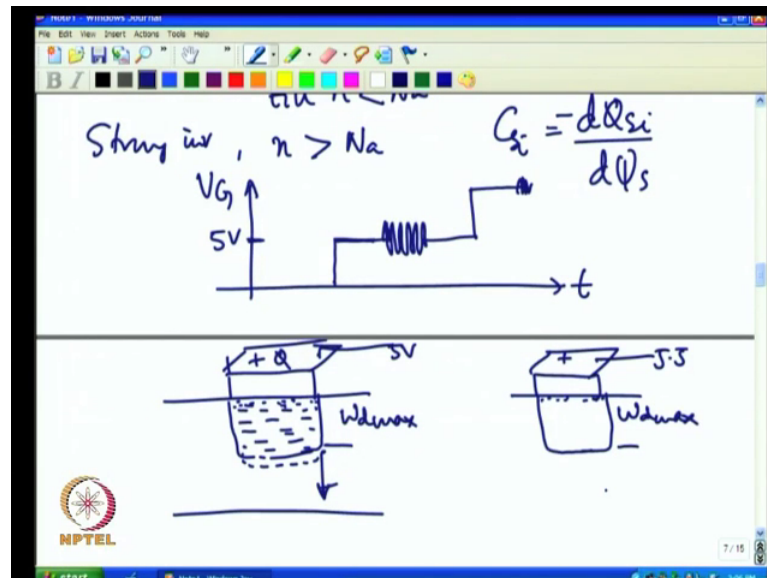 Note1 - Windows Journal
File Edit View Insert Actions Tools Help
B I
Strong inv, n > Na
C_si = -dQsi / dψs
VG
5V
t
+ Q
5V
Wdmax
+
5.5
Wdmax
NPTEL
7/15
start